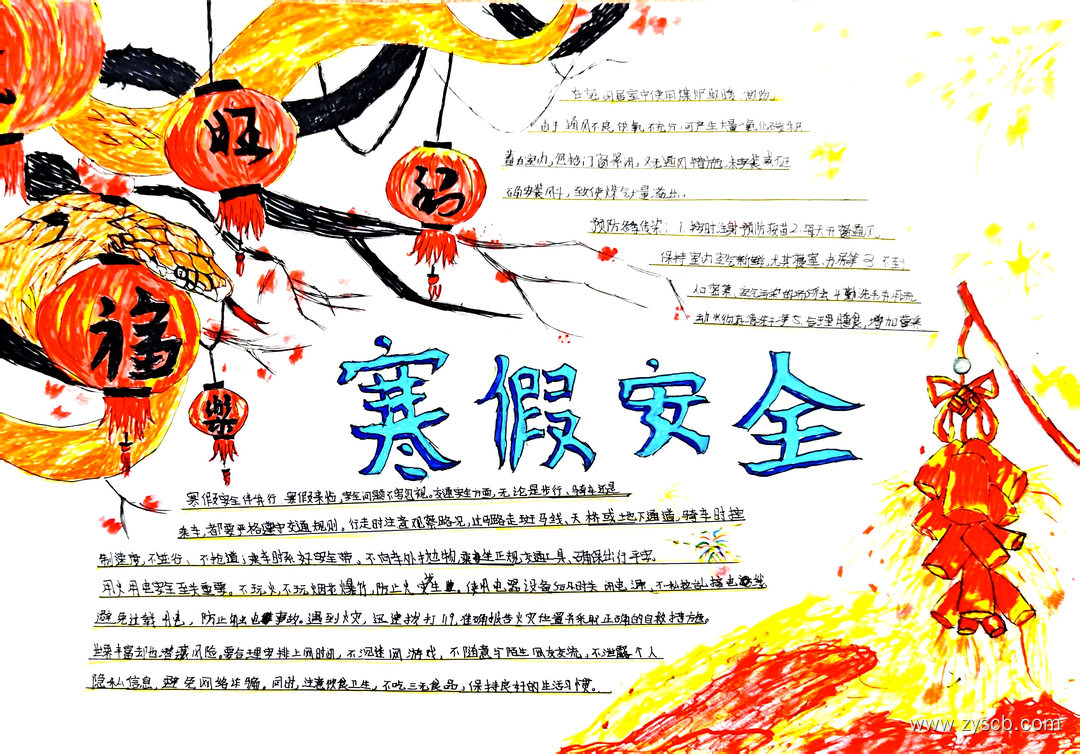 旺
福
福
樂
在密闭居室中使用煤炉取暖、做饭,
由于通风不良,供氧不充分,可产生大量一氧化碳积
蓄在室内,
门窗紧闭,又无通风措施,未安装或不正
确安装风斗,致使煤气大量溢出.
预防传染:1.按时注射预防疫苗2.每天开窗通风,
保持室内空气新鲜,尤其寝室、
不到
人口密集、空气污染的场所去
勤洗手
合理膳食,增加营养
寒假安全
寒假安全伴我行 寒假来临,安全问题不容忽视。交通安全方面,无论是步行、骑车还是
乘车,都要严格遵守交通规则。行走时注意观察路况,过马路走斑马线、天桥或地下通道,骑车时控
制速度,不并行、不抢道;乘车时系好安全带。不向车外抛物,乘坐正规交通工具、确保出行平安。
用火用电安全至关重要。不玩火、不玩烟花爆竹,防止火灾发生。使用电器设备
时关闭电源,不私拉乱接电线
避免过载用电,防止触电事故。遇到火灾,迅速拨打119,准确报告火灾位置并采取正确的自救措施。
丰富却也潜藏风险。要合理安排上网时间,不沉迷网游戏,不随意与陌生网友交流,不泄露个人
隐私信息,避免网络诈骗。同时,注意饮食卫生,不吃三无食品,保持良好的生活习惯。
www.zyscb.com